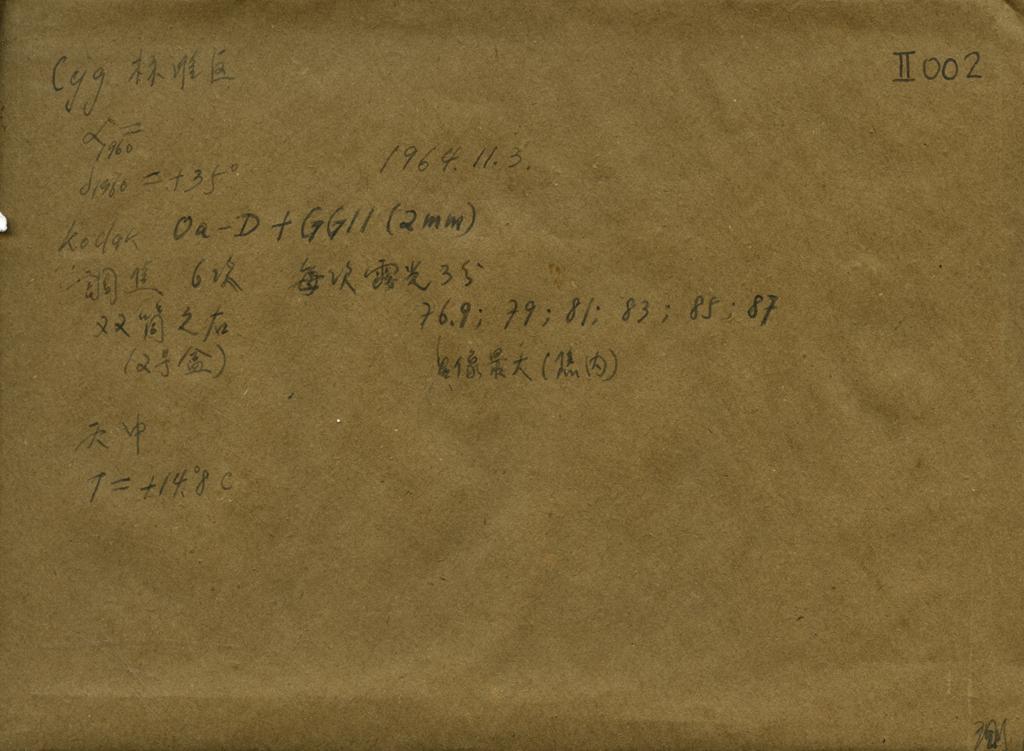 Cyg 标准区
II 002
α1960 =
δ1960 = +35°
1964.11.3.
Kodak Oa-D + GG11 (2mm)
調焦 6次 每次露光3分
双筒之右
76.9; 79; 81; 83; 85; 87
(2号盒)
像最大(焦内)
天中
T = +14.°8 C